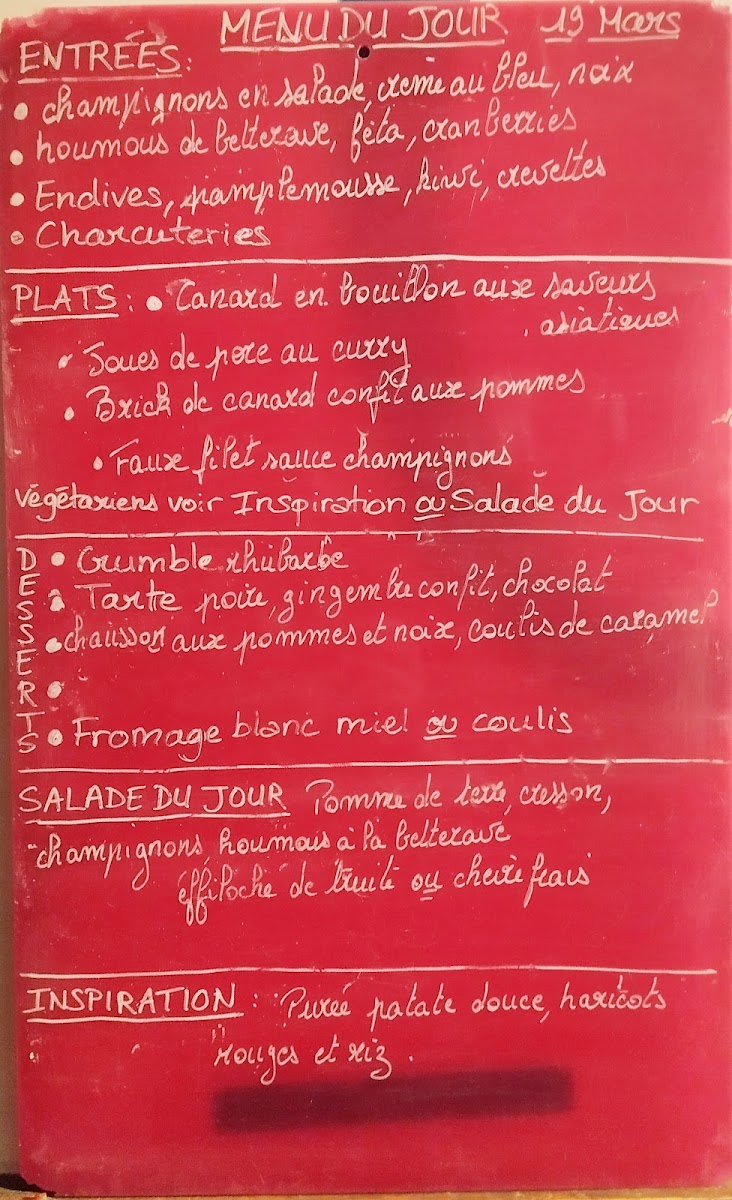 MENU DU JOUR 19 Mars
ENTRÉES:
• champignons en salade, crème au bleu, noix
• houmous de betterave, féta, cranberries
• Endives, pamplemousse, kiwi, crevettes
• Charcuteries
PLATS : • Canard en bouillon aux saveurs
asiatiques
• Joues de porc au curry
• Brick de canard confit aux pommes
• Faux filet sauce champignons
végétariens voir Inspiration ou Salade du Jour
DESSERTS
• Crumble rhubarbe
• Tarte poire, gingembre confit, chocolat
• chausson aux pommes et noix, coulis de caramel
•
• Fromage blanc miel ou coulis
SALADE DU JOUR Pomme de terre, cresson,
champignons houmous à la betterave
éffiloché de truite ou chèvre frais
INSPIRATION : Purée patate douce, haricots
rouges et riz.